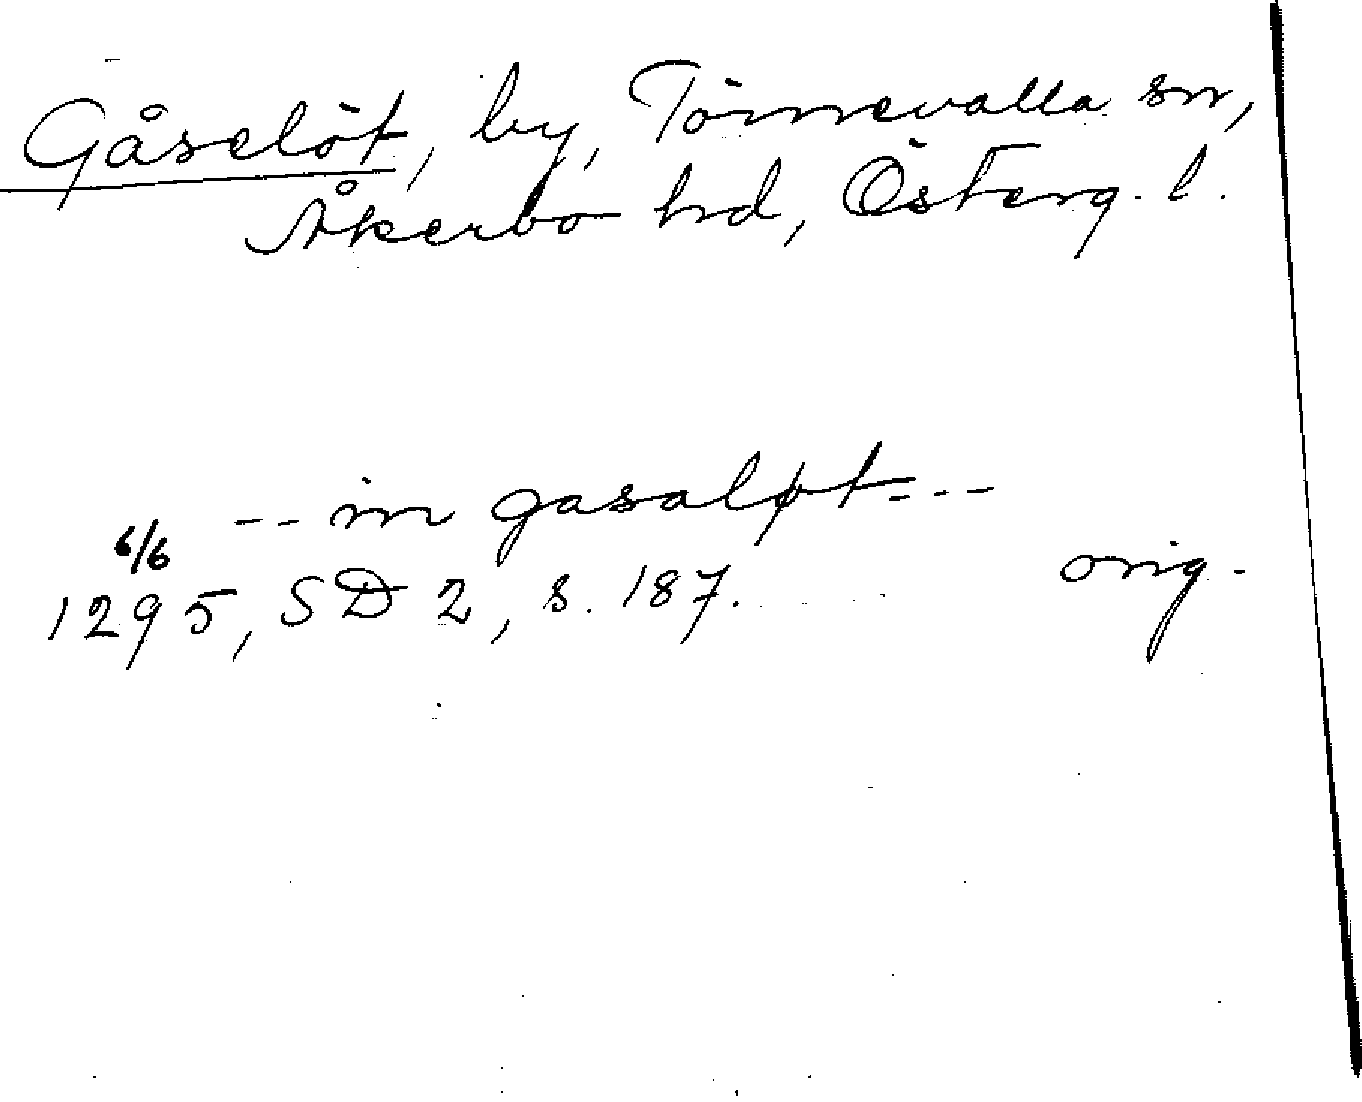 Gåselöt, by, Törnevalla sn,
Åkerbo hd, Österg. l.
-- in gasaløt ---
6/6
1295, SD 2, s. 187. orig.